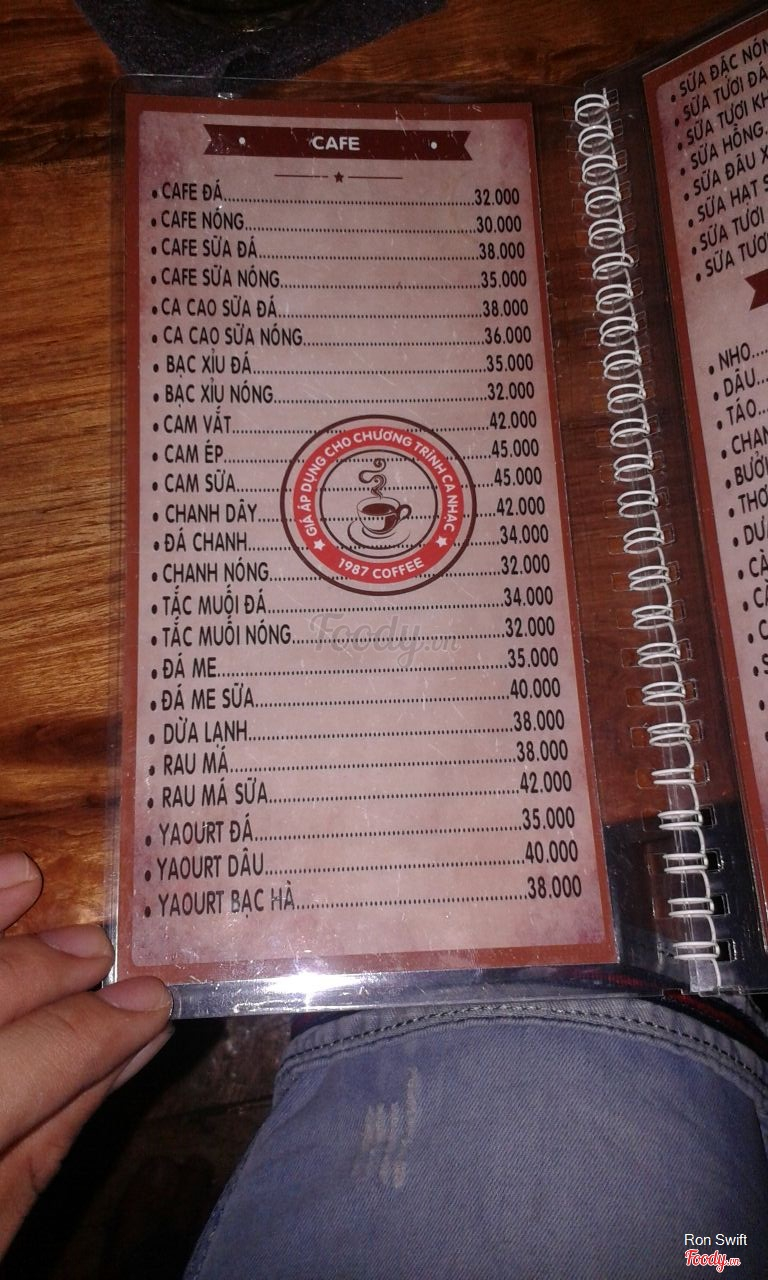 CAFE
• CAFE ĐÁ..........32.000
• CAFE NÓNG..........30.000
• CAFE SỮA ĐÁ..........38.000
• CAFE SỮA NÓNG..........35.000
• CA CAO SỮA ĐÁ..........38.000
• CA CAO SỮA NÓNG..........36.000
• BẠC XỈU ĐÁ..........35.000
• BẠC XỈU NÓNG..........32.000
• CAM VẮT..........42.000
• CAM ÉP..........45.000
• CAM SỮA..........45.000
• CHANH DÂY..........42.000
• ĐÁ CHANH..........34.000
• CHANH NÓNG..........32.000
• TẮC MUỐI ĐÁ..........34.000
• TẮC MUỐI NÓNG..........32.000
• ĐÁ ME..........35.000
• ĐÁ ME SỮA..........40.000
• DỪA LẠNH..........38.000
• RAU MÁ..........38.000
• RAU MÁ SỮA..........42.000
• YAOURT ĐÁ..........35.000
• YAOURT DÂU..........40.000
• YAOURT BẠC HÀ..........38.000
GIÁ ÁP DỤNG CHO CHƯƠNG TRÌNH CA NHẠC
1987 COFFEE
Foody.vn
• SỮA ĐẶC NÓN
• SỮA TƯƠI ĐÁ
• SỮA TƯƠI KH
• SỮA HỒNG.
• SỮA ĐẬU X
• SỮA HẠT S
• SỮA TƯƠI
• SỮA TƯƠ
• NHO....
• DÂU...
• TÁO...
• CHAN
• BƯỞI
• THƠ
• DƯ
Ron Swift
Foody.vn